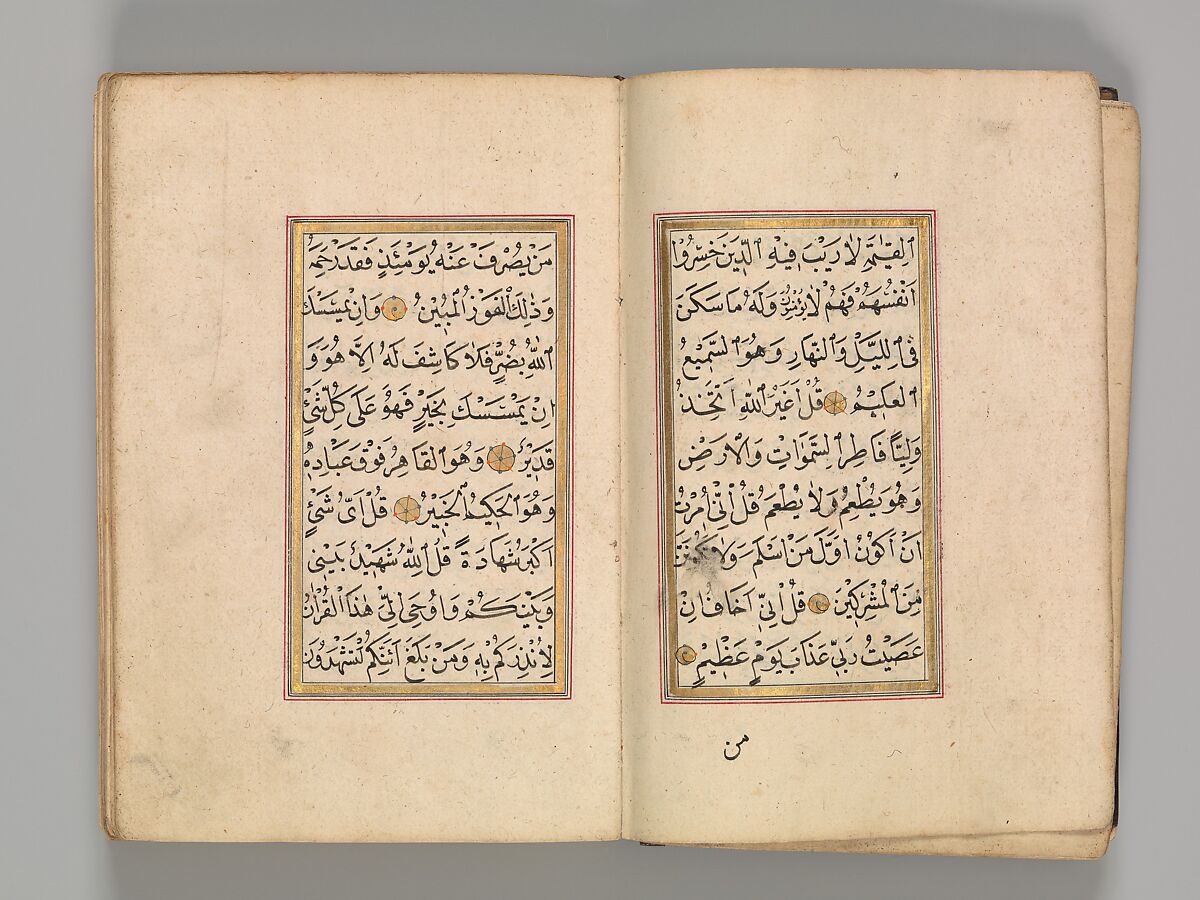 الْقِيٰمَةِ لَا رَيْبَ فِيهِ الَّذِينَ خَسِرُوا
اَنْفُسَهُمْ فَهُمْ لَا يُؤْمِنُونَ وَلَهُ مَا سَكَنَ
فِي الَّيْلِ وَالنَّهَارِ وَهُوَ السَّمِيعُ
الْعَلِيمُ قُلْ اَغَيْرَ اللّٰهِ اَتَّخِذُ
وَلِيًّا فَاطِرِ السَّمٰوَاتِ وَالْاَرْضِ
وَهُوَ يُطْعِمُ وَلَا يُطْعَمُ قُلْ اِنِّي اُمِرْتُ
اَنْ اَكُونَ اَوَّلَ مَنْ اَسْلَمَ وَلَا تَكُونَنَّ
مِنَ الْمُشْرِكِينَ قُلْ اِنِّي اَخَافُ اِنْ
عَصَيْتُ رَبِّي عَذَابَ يَوْمٍ عَظِيمٍ
من
مَنْ يُصْرَفْ عَنْهُ يَوْمَئِذٍ فَقَدْ رَحِمَهُ
وَذٰلِكَ الْفَوْزُ الْمُبِينُ وَاِنْ يَمْسَسْكَ
اللّٰهُ بِضُرٍّ فَلَا كَاشِفَ لَهُ اِلَّا هُوَ وَ
اِنْ يَمْسَسْكَ بِخَيْرٍ فَهُوَ عَلَى كُلِّ شَيْءٍ
قَدِيرٌ وَهُوَ الْقَاهِرُ فَوْقَ عِبَادِهِ
وَهُوَ الْحَكِيمُ الْخَبِيرُ قُلْ اَيُّ شَيْءٍ
اَكْبَرُ شَهَادَةً قُلِ اللّٰهُ شَهِيدٌ بَيْنِي
وَبَيْنَكُمْ وَاُوحِيَ اِلَيَّ هٰذَا الْقُرْاٰنُ
لِاُنْذِرَكُمْ بِهِ وَمَنْ بَلَغَ اَئِنَّكُمْ لَتَشْهَدُونَ